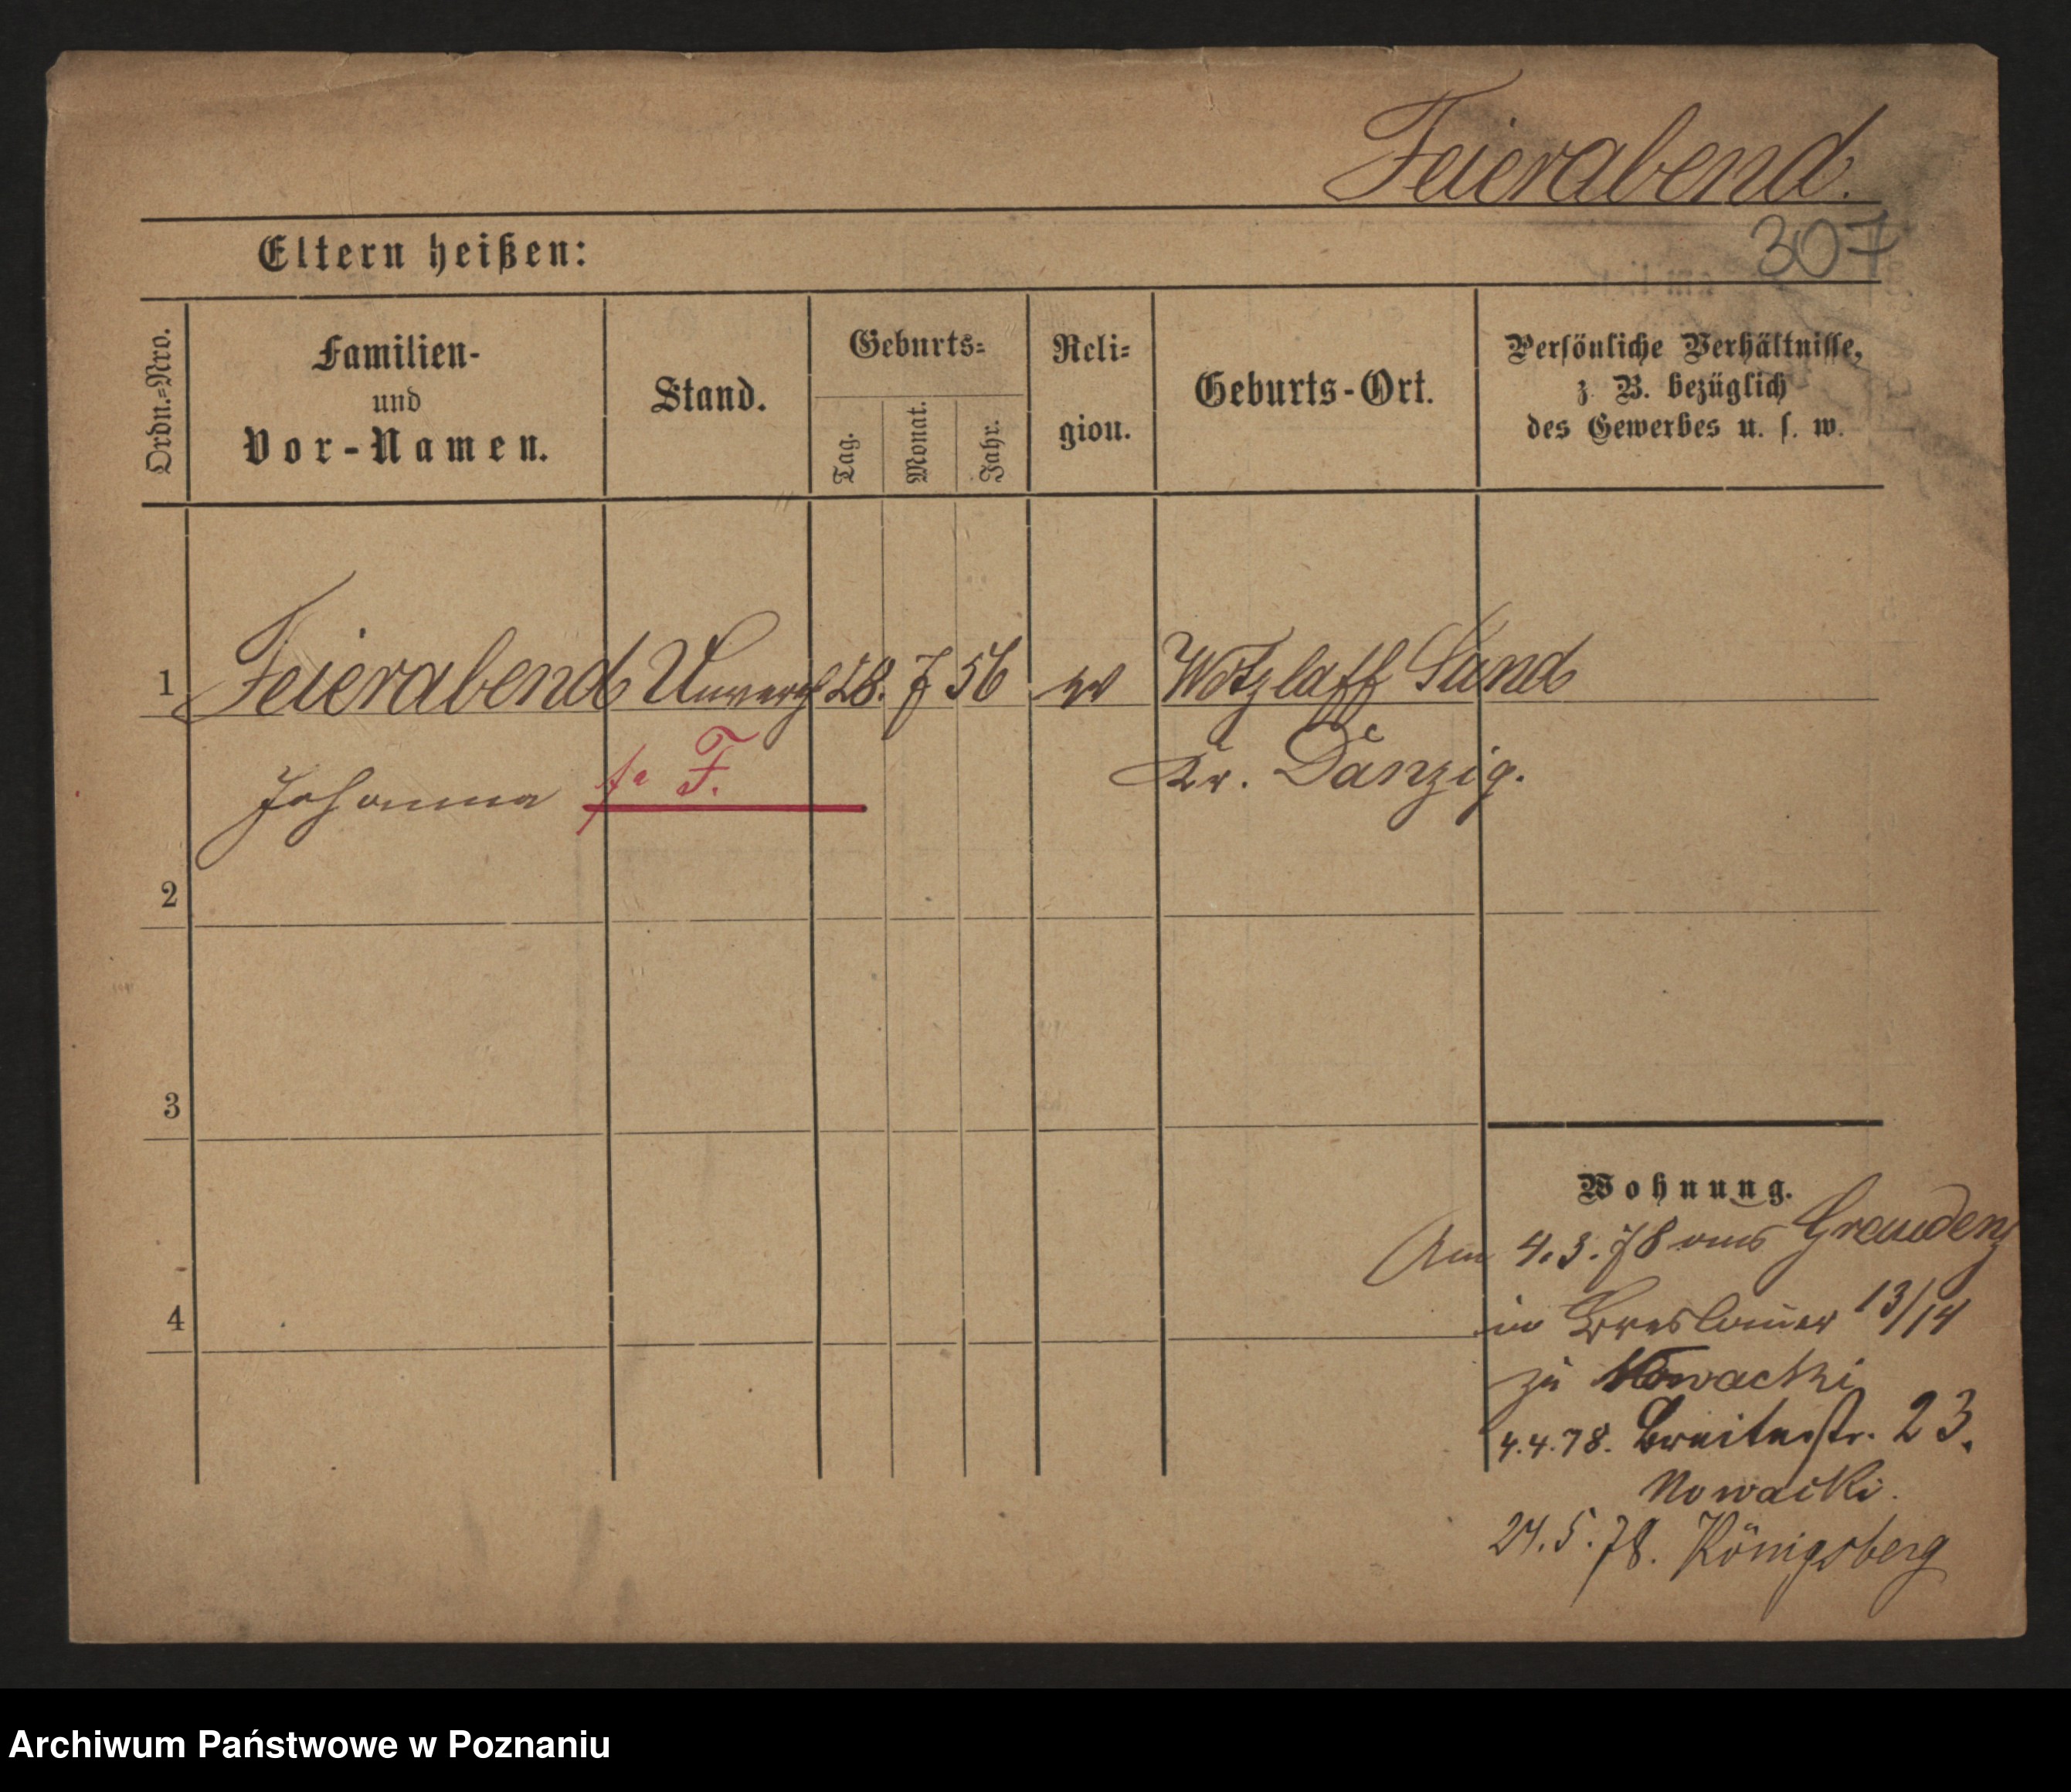 Feierabend.
307
Eltern heißen:
Ordn.=Nro.
Familien-
und
Vor-Namen.
Stand.
Geburts=
Tag.
Monat.
Jahr.
Reli=
gion.
Geburts-Ort.
Persönliche Verhältnisse,
z. B. bezüglich
des Gewerbes u. s. w.
1 Feierabend Unverh 28. 7 56 ev Wotzlaff Sand
Johanna F. Kr. Danzig.
2
3
4
Wohnung.
Am 4.3.78 aus Graudenz
in Breslauer 13/14
zu Nowacki
4.4.78. Breitestr. 23.
Nowacki.
24.5.78. Königsberg
Archiwum Państwowe w Poznaniu